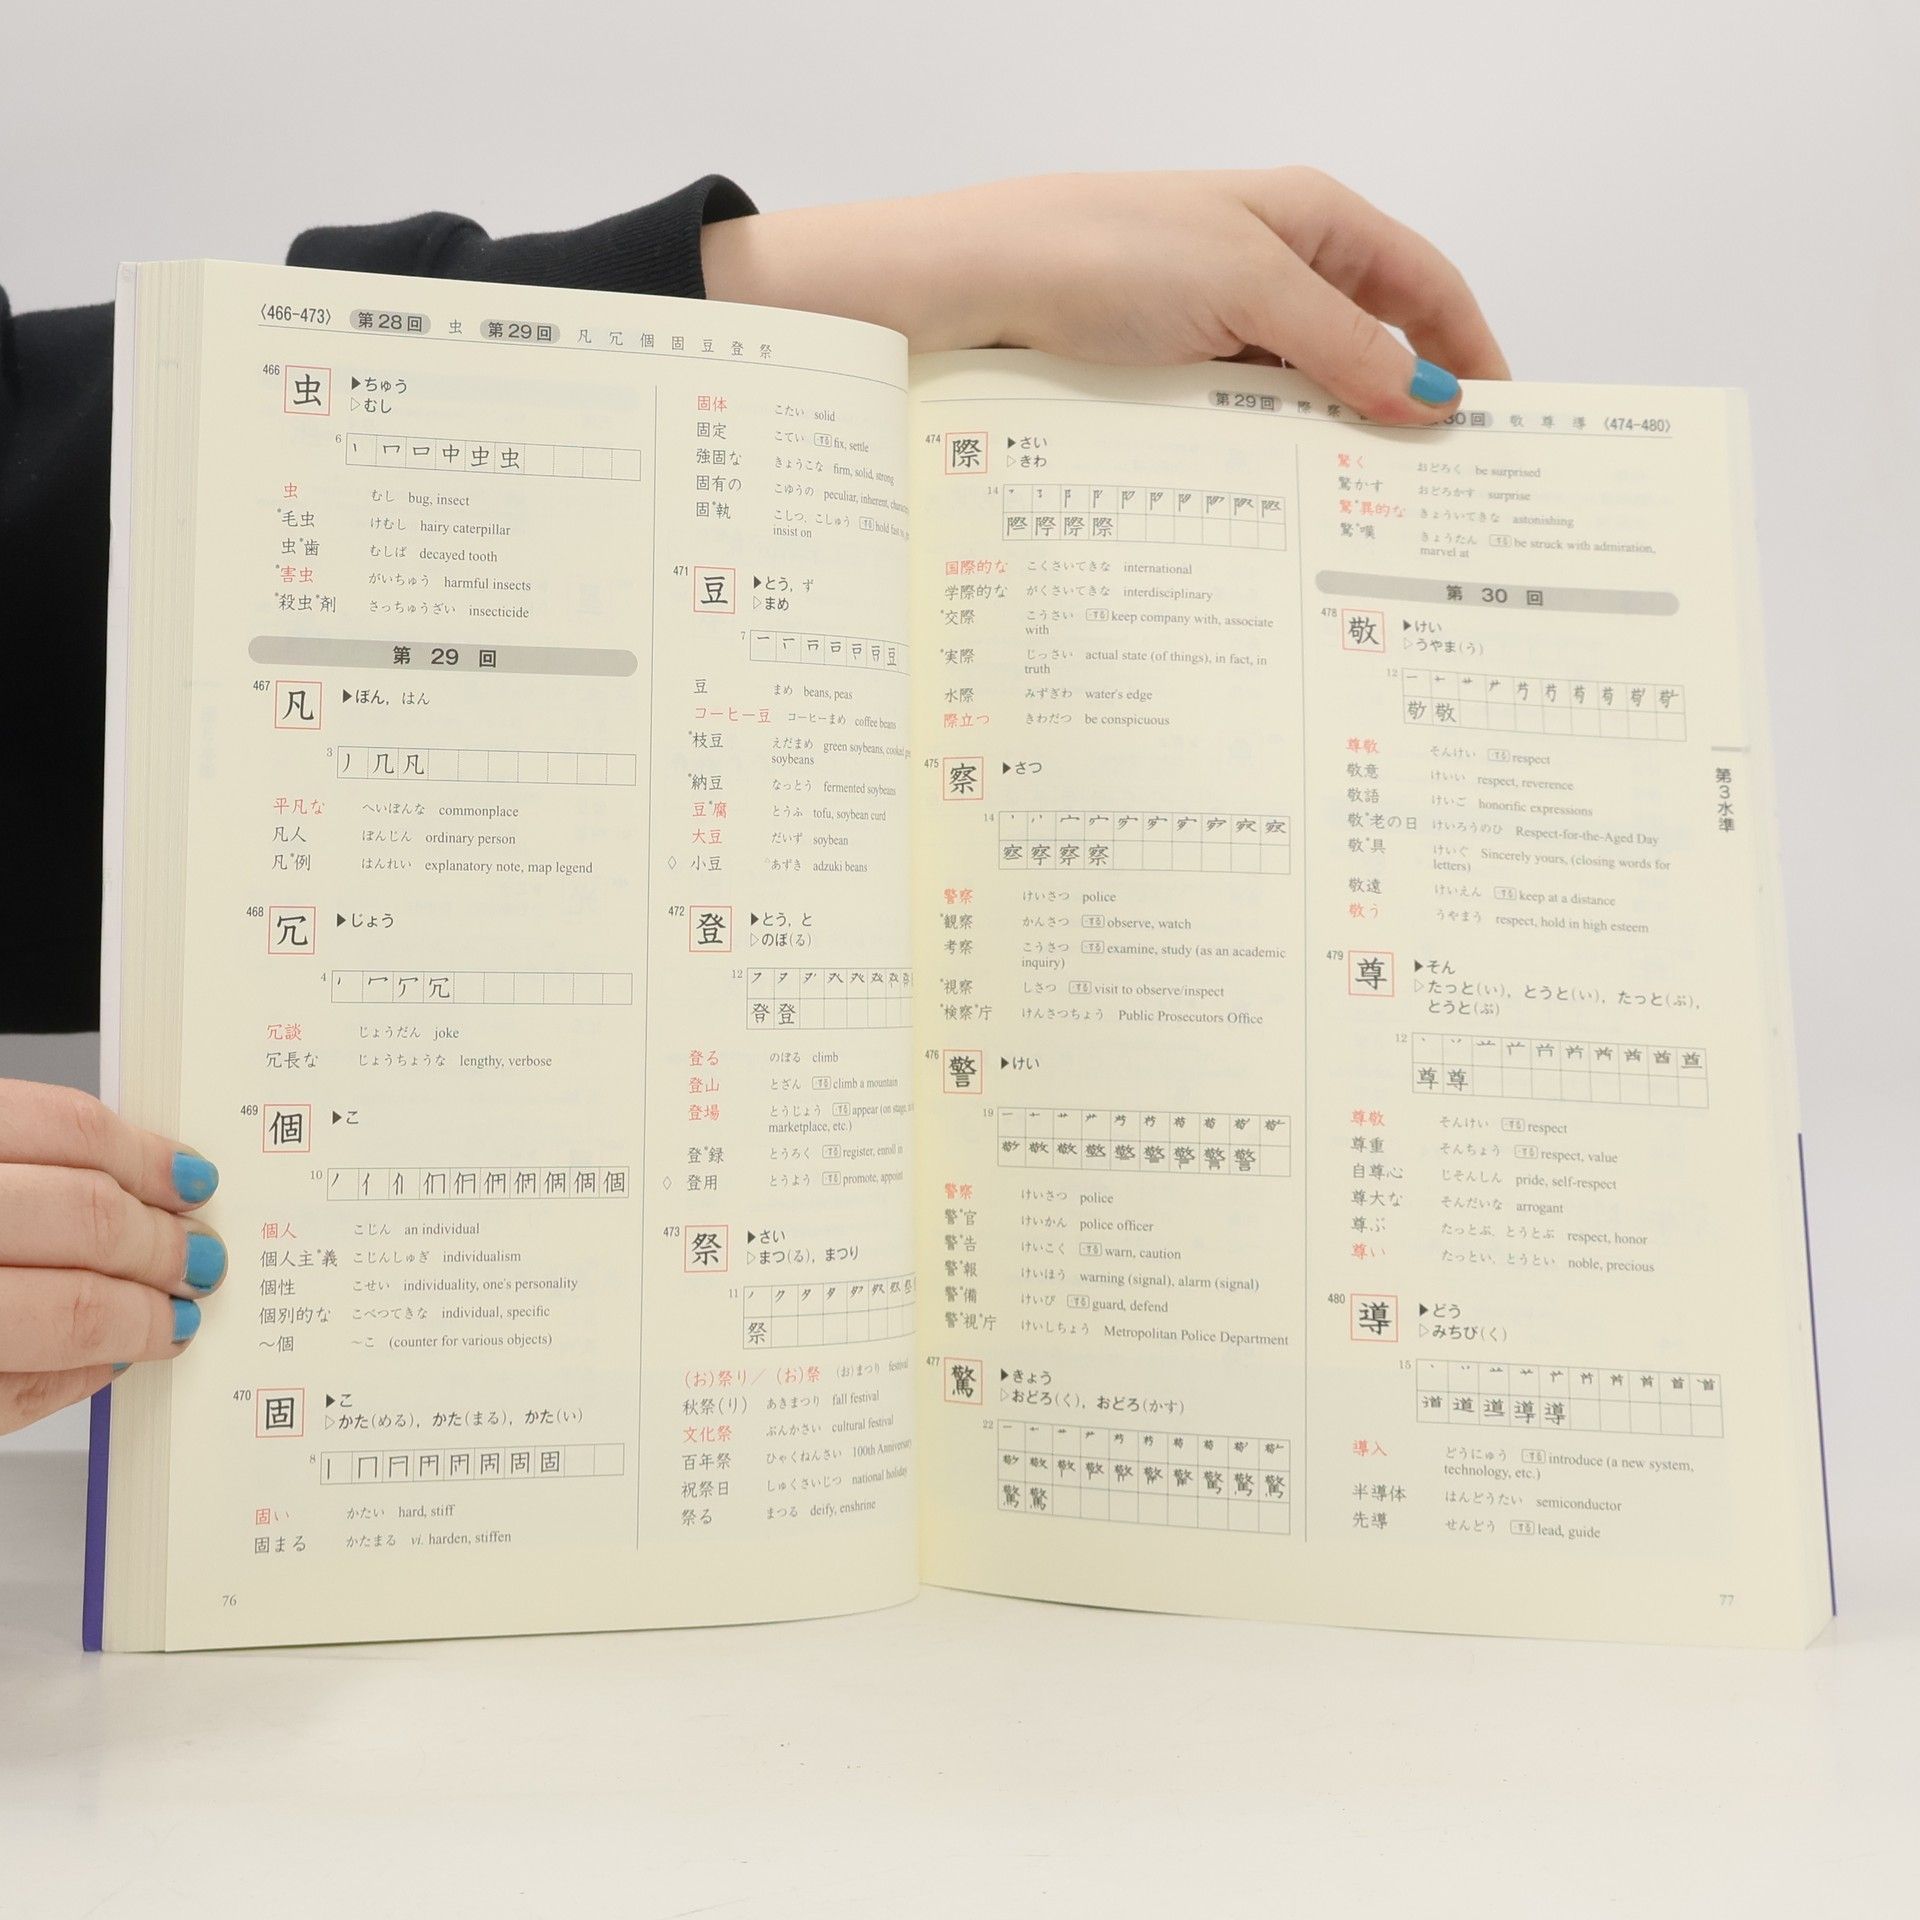 〈466-473〉 第28回 虫 第29回 凡 冗 個 固 豆 登 祭
466 虫 ▶ちゅう
▷むし
6 虫
虫 むし bug, insect
*毛虫 けむし hairy caterpillar
虫*歯 むしば decayed tooth
*害虫 がいちゅう harmful insects
*殺虫*剤 さっちゅうざい insecticide
第 29 回
467 凡 ▶ぼん, はん
3 凡
平凡な へいぼんな commonplace
凡人 ぼんじん ordinary person
凡*例 はんれい explanatory note, map legend
468 冗 ▶じょう
4 冗
冗談 じょうだん joke
冗長な じょうちょうな lengthy, verbose
469 個 ▶こ
10 個
個人 こじん an individual
個人主*義 こじんしゅぎ individualism
個性 こせい individuality, one's personality
個別的な こべつてきな individual, specific
〜個 〜こ (counter for various objects)
470 固 ▶こ
▷かた(める), かた(まる), かた(い)
8 固
固い かたい hard, stiff
固まる かたまる vi. harden, stiffen
76
固体 こたい solid
固定 こてい する fix, settle
強固な きょうこな firm, solid, strong
固有の こゆうの peculiar, inherent,
固*執 こしつ, こしゅう する hold fast
insist on
471 豆 ▶とう, ず
▷まめ
7 豆
豆 まめ beans, peas
コーヒー豆 コーヒーまめ coffee beans
*枝豆 えだまめ green soybeans, cooked
soybeans
*納豆 なっとう fermented soybeans
豆*腐 とうふ tofu, soybean curd
大豆 だいず soybean
◇ 小豆 あずき adzuki beans
472 登 ▶とう, と
▷のぼ(る)
12
登
登る のぼる climb
登山 とざん する climb a mountain
登場 とうじょう する appear (on stage,
marketplace, etc.)
登*録 とうろく する register, enroll in
◇ 登用 とうよう する promote, appoint
473 祭 ▶さい
▷まつ(る), まつり
11
祭
(お)祭り／(お)祭 (お)まつり festival
秋祭(り) あきまつり fall festival
文化祭 ぶんかさい cultural festival
百年祭 ひゃくねんさい 100th Anniversary
祝祭日 しゅくさいじつ national holiday
祭る まつる deify, enshrine
第29回 際 察 30回 敬 尊 導 〈474-480〉
474 際 ▶さい
▷きわ
14
際
国際的な こくさいてきな international
学際的な がくさいてきな interdisciplinary
*交際 こうさい する keep company with, associate
with
*実際 じっさい actual state (of things), in fact, in
truth
水際 みずぎわ water's edge
際立つ きわだつ be conspicuous
475 察 ▶さつ
14
察
警察 けいさつ police
*観察 かんさつ する observe, watch
考察 こうさつ する examine, study (as an academic
inquiry)
*視察 しさつ する visit to observe/inspect
*検察*庁 けんさつちょう Public Prosecutors Office
476 警 ▶けい
19
警
警察 けいさつ police
警*官 けいかん police officer
警*告 けいこく する warn, caution
警*報 けいほう warning (signal), alarm (signal)
警*備 けいび する guard, defend
警*視*庁 けいしちょう Metropolitan Police Department
477 驚 ▶きょう
▷おどろ(く), おどろ(かす)
22
驚
驚く おどろく be surprised
驚かす おどろかす surprise
驚*異的な きょういてきな astonishing
驚*嘆 きょうたん する be struck with admiration,
marvel at
第 30 回
478 敬 ▶けい
▷うやま(う)
12
敬
尊敬 そんけい する respect
敬意 けいい respect, reverence
敬語 けいご honorific expressions
敬*老の日 けいろうのひ Respect-for-the-Aged Day
敬*具 けいぐ Sincerely yours, (closing words for
letters)
敬遠 けいえん する keep at a distance
敬う うやまう respect, hold in high esteem
479 尊 ▶そん
▷たっと(い), とうと(い), たっと(ぶ),
とうと(ぶ)
12
尊 尊
尊敬 そんけい する respect
尊重 そんちょう する respect, value
自尊心 じそんしん pride, self-respect
尊大な そんだいな arrogant
尊ぶ たっとぶ, とうとぶ respect, honor
尊い たっとい, とうとい noble, precious
480 導 ▶どう
▷みちび(く)
15
導
導入 どうにゅう する introduce (a new system,
technology, etc.)
半導体 はんどうたい semiconductor
先導 せんどう する lead, guide
第3水準
77